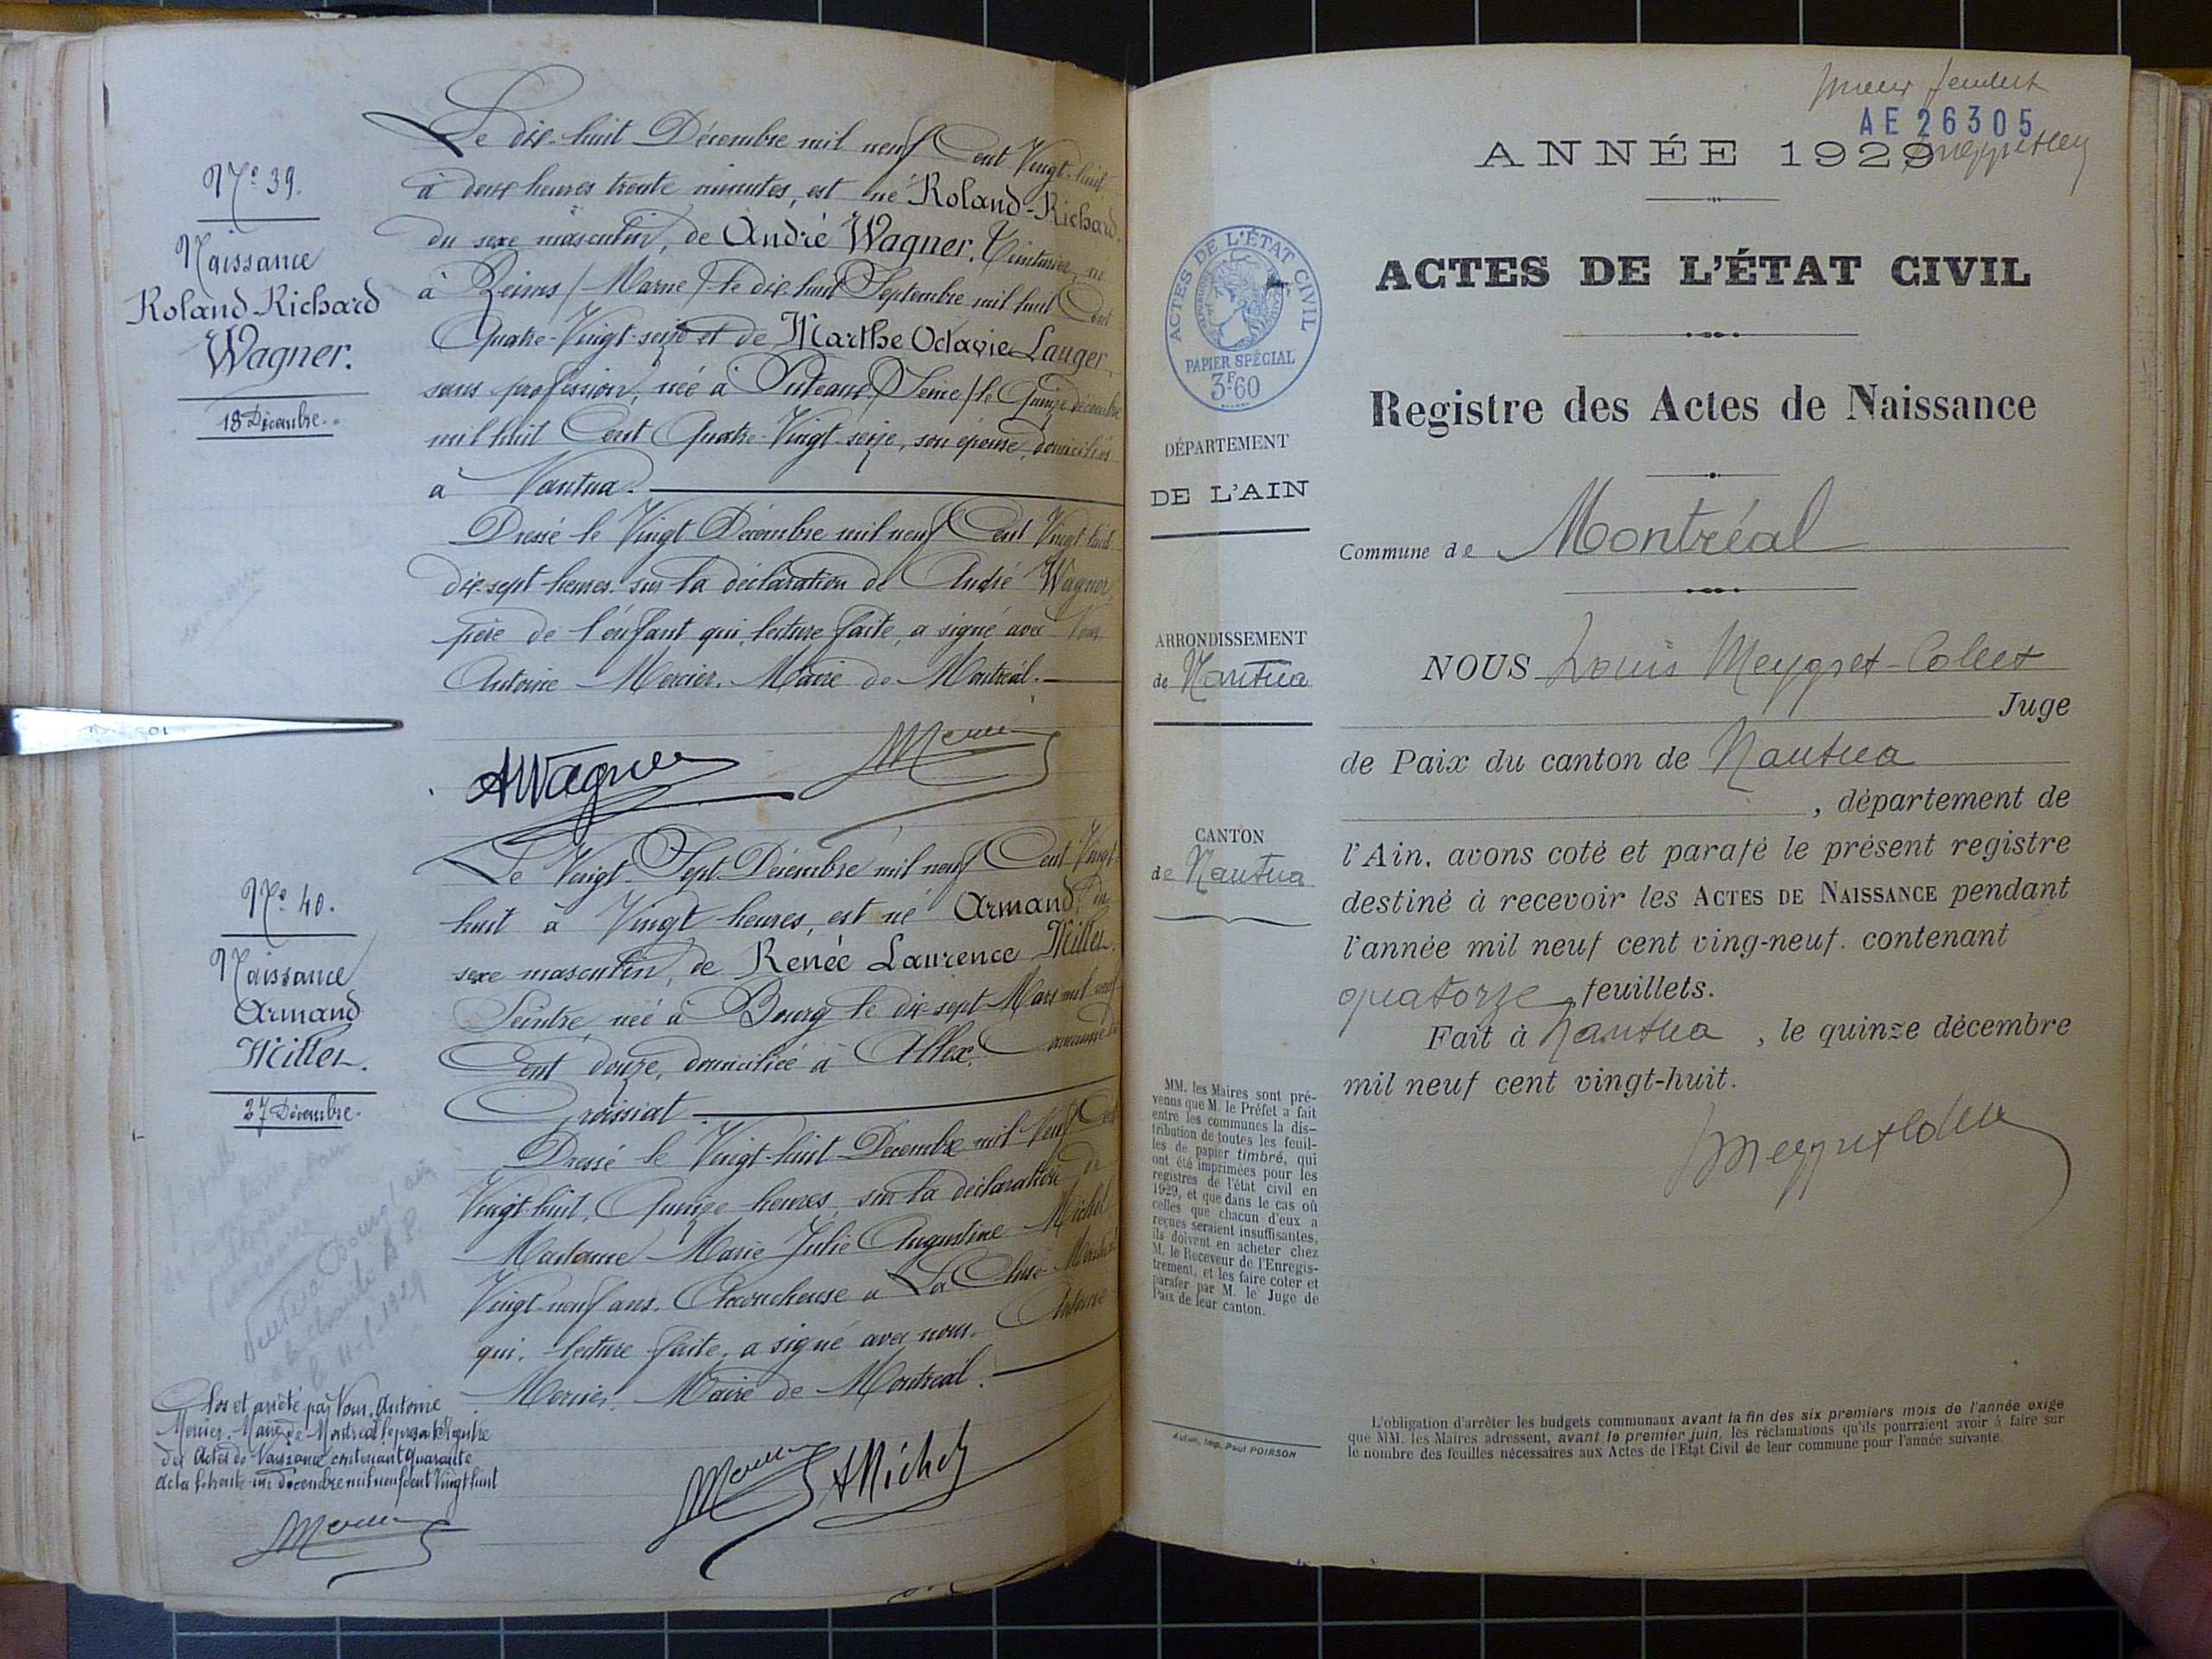 N° 39.
Naissance
Roland-Richard
Wagner.
18 Décembre.
Le dix-huit Décembre mil neuf Cent Vingt-huit
à deux heures trente minutes, est né Roland-Richard,
du sexe masculin, de André Wagner, Teinturier, né
à Reims / Marne / le dix-huit Septembre mil huit Cent
Quatre-Vingt-seize et de Marthe Octavie Lauger,
sans profession, née à Puteaux / Seine / le Quinze décembre
mil huit Cent Quatre-Vingt-seize, son épouse, domiciliés
à Nantua.
Dressé le Vingt Décembre mil neuf Cent Vingt-huit
dix-sept heures sur la déclaration de André Wagner,
père de l'enfant qui, lecture faite, a signé avec Nous
Antoine Mercier, Maire de Montréal.
AWagner Mercier
N° 40.
Naissance
Armand
Millet.
27 Décembre.
Le Vingt-Sept Décembre mil neuf Cent Vingt-
huit à Vingt heures, est né Armand, du
sexe masculin, de Renée Laurence Millet,
née à Bourg le dix sept Mars mil neuf
Cent douze, domiciliée à Allex, commune de
Groissiat.
Dressé le Vingt-huit Décembre mil Neuf Cent
Vingt-huit, Quinze heures, sur la déclaration de
Madame Marie Julie Augustine Michel
Vingt-neuf ans, Accoucheuse à La Cluse-Montréal
qui, lecture faite, a signé avec nous, Antoine
Mercier, Maire de Montréal.
Mercier AMichel
le 11-1-1929
Clos et arrêté par Nous, Antoine
Mercier, Maire de Montréal, le présent Registre
des Actes de Naissance contenant Quarante
actes le trente-un Décembre mil neuf cent Vingt huit
Mercier
AE 26305
ANNÉE 1929
ACTES DE L'ÉTAT CIVIL
Registre des Actes de Naissance
ACTES DE L'ÉTAT CIVIL
PAPIER SPÉCIAL
3F60
DÉPARTEMENT
DE L'AIN
Commune de Montréal
ARRONDISSEMENT
de Nantua
NOUS Louis Meygret-Collet
Juge
de Paix du canton de Nantua
, département de
CANTON
de Nantua
l'Ain, avons coté et parafé le présent registre
destiné à recevoir les ACTES DE NAISSANCE pendant
l'année mil neuf cent ving-neuf. contenant
quatorze feuillets.
Fait à Nantua, le quinze décembre
mil neuf cent vingt-huit.
MM. les Maires sont pré-
venus que M. le Préfet a fait
entre les communes la dis-
tribution de toutes les feuil-
les de papier timbré, qui
ont été imprimées pour les
registres de l'état civil en
1929, et que dans le cas où
celles que chacun d'eux a
reçues seraient insuffisantes,
ils doivent en acheter chez
M. le Receveur de l'Enregis-
trement, et les faire coter et
parafer par M. le Juge de
Paix de leur canton.
Autun, Imp. Paul POIRSON
L'obligation d'arrêter les budgets communaux avant la fin des six premiers mois de l'année exige
que MM. les Maires adressent, avant le premier juin, les réclamations qu'ils pourraient avoir à faire sur
le nombre des feuilles nécessaires aux Actes de l'Etat Civil de leur commune pour l'année suivante.